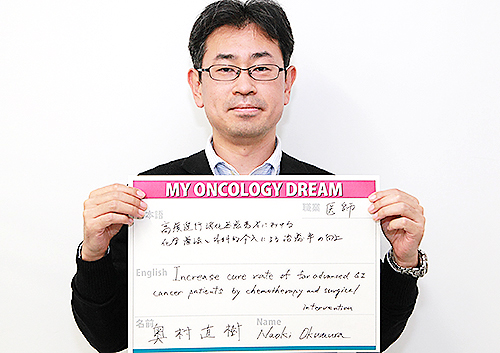 MY ONCOLOGY DREAM
日本語 職業 医師
高度進行消化器癌患者における
化学療法、外科的介入による治癒率の向上
English Increase cure rate of far advanced GI
cancer patients by chemotherapy and surgical
intervention
名前 Name
奥村直樹 Naoki Okumura